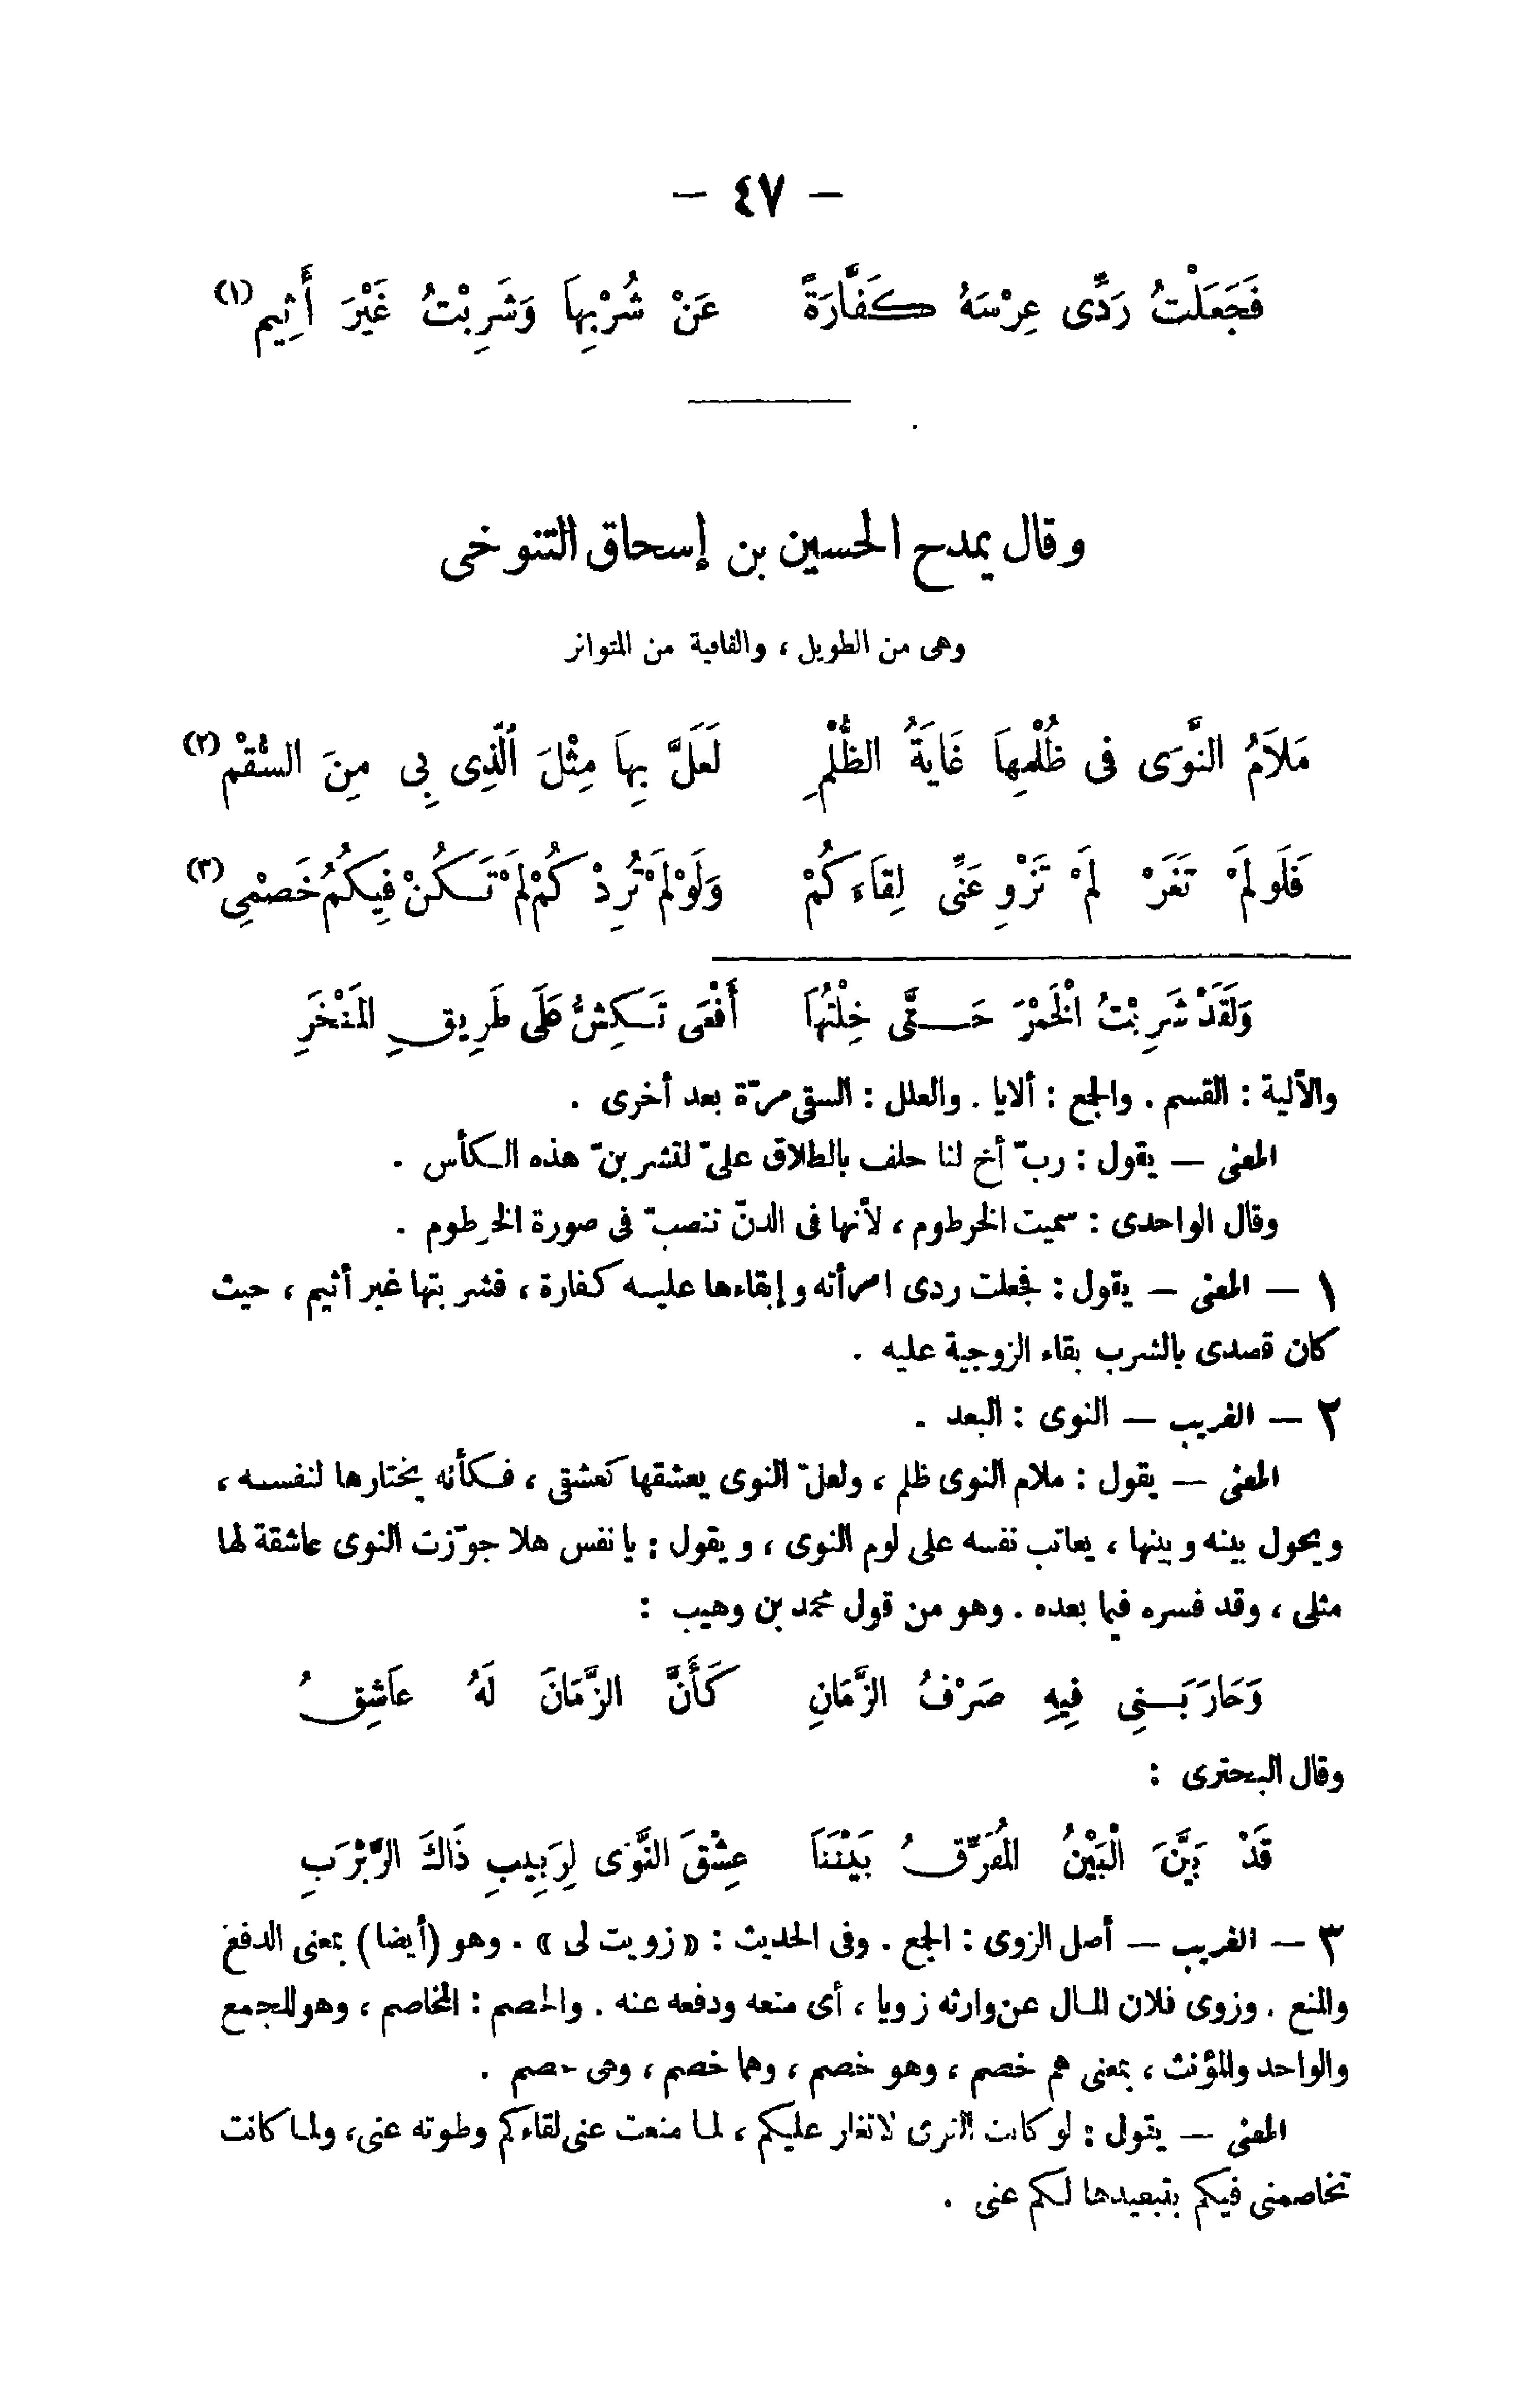 – ٤٧ –
فَجَعَلْتُ رَدِّى عِرْسَهُ كَفَّارَةً عَنْ شُرْبِهَا وَشَرِبْتُ غَيْرَ أَثِيمِ (١)
وقال يمدح الحسين بن إسحاق التنوخى
وهى من الطويل ، والقافية من المتواتر
مَلاَمُ النَّوَى فى ظُلْمِهَا غَايَةُ الظُّلْمِ لَعَلَّ بِهَا مِثْلَ الَّذِى بِى مِنَ السُّقْمِ (٢)
فَلَو لَمْ تَغَرْ لَمْ تَزْوِ عَنِّى لِقَاءَكُمْ وَلَوْ لَمْ تُرِدْكُمْ لَمْ تَكُنْ فِيكُمُ خَصْمِى (٣)
وَلَقَدْ شَرِبْتُ الْخَمْرَ حَتَّى خِلْتُهَا أَفْعَى تَكِشُّ عَلَى طَرِيقِ المَنْخَرِ
والألية : القسم . والجمع : ألايا . والعلل : السقى مرّة بعد أخرى .
المعنى – يقول : ربّ أخ لنا حلف بالطلاق علىّ لتشربنّ هذه الكأس .
وقال الواحدى : سميت الخرطوم ، لأنها فى الدنّ تنصبّ فى صورة الخرطوم .
١ – المعنى – يقول : فجعلت ردى امرأته وإبقاءها عليه كفارة ، فشربتها غير أثيم ، حيث
كان قصدى بالشرب بقاء الزوجية عليه .
٢ – الغريب – النوى : البعد .
المعنى – يقول : ملام النوى ظلم ، ولعلّ النوى يعشقها كعشقى ، فكأنه يختارها لنفسه ،
ويحول بينه وبينها ، يعاتب نفسه على لوم النوى ، ويقول : يا نفس هلا جوّزت النوى عاشقة لها
مثلى ، وقد فسره فيما بعده . وهو من قول محمد بن وهيب :
وَحَارَبَنِى فِيهِ صَرْفُ الزَّمَانِ كَأَنَّ الزَّمَانَ لَهُ عَاشِقُ
وقال البحترى :
قَدْ بَيَّنَ الْبَيْنُ المُفَرِّقُ بَيْنَنَا عِشْقَ النَّوَى لِرَبِيبِ ذَاكَ الرَّبْرَبِ
٣ – الغريب – أصل الزوى : الجمع . وفى الحديث : « زويت لى » . وهو (أيضا) بمعنى الدفع
والمنع . وزوى فلان المال عن وارثه زويا ، أى منعه ودفعه عنه . والخصم : المخاصم ، وهو للجمع
والواحد والمؤنث ، بمعنى هم خصم ، وهو خصم ، وهما خصم ، وهى خصم .
المعنى – يقول : لو كانت النوى لا تغار عليكم ، لما منعت عنى لقاءكم وطوته عنى ، ولما كانت
تخاصمنى فيكم بتبعيدها لكم عنى .